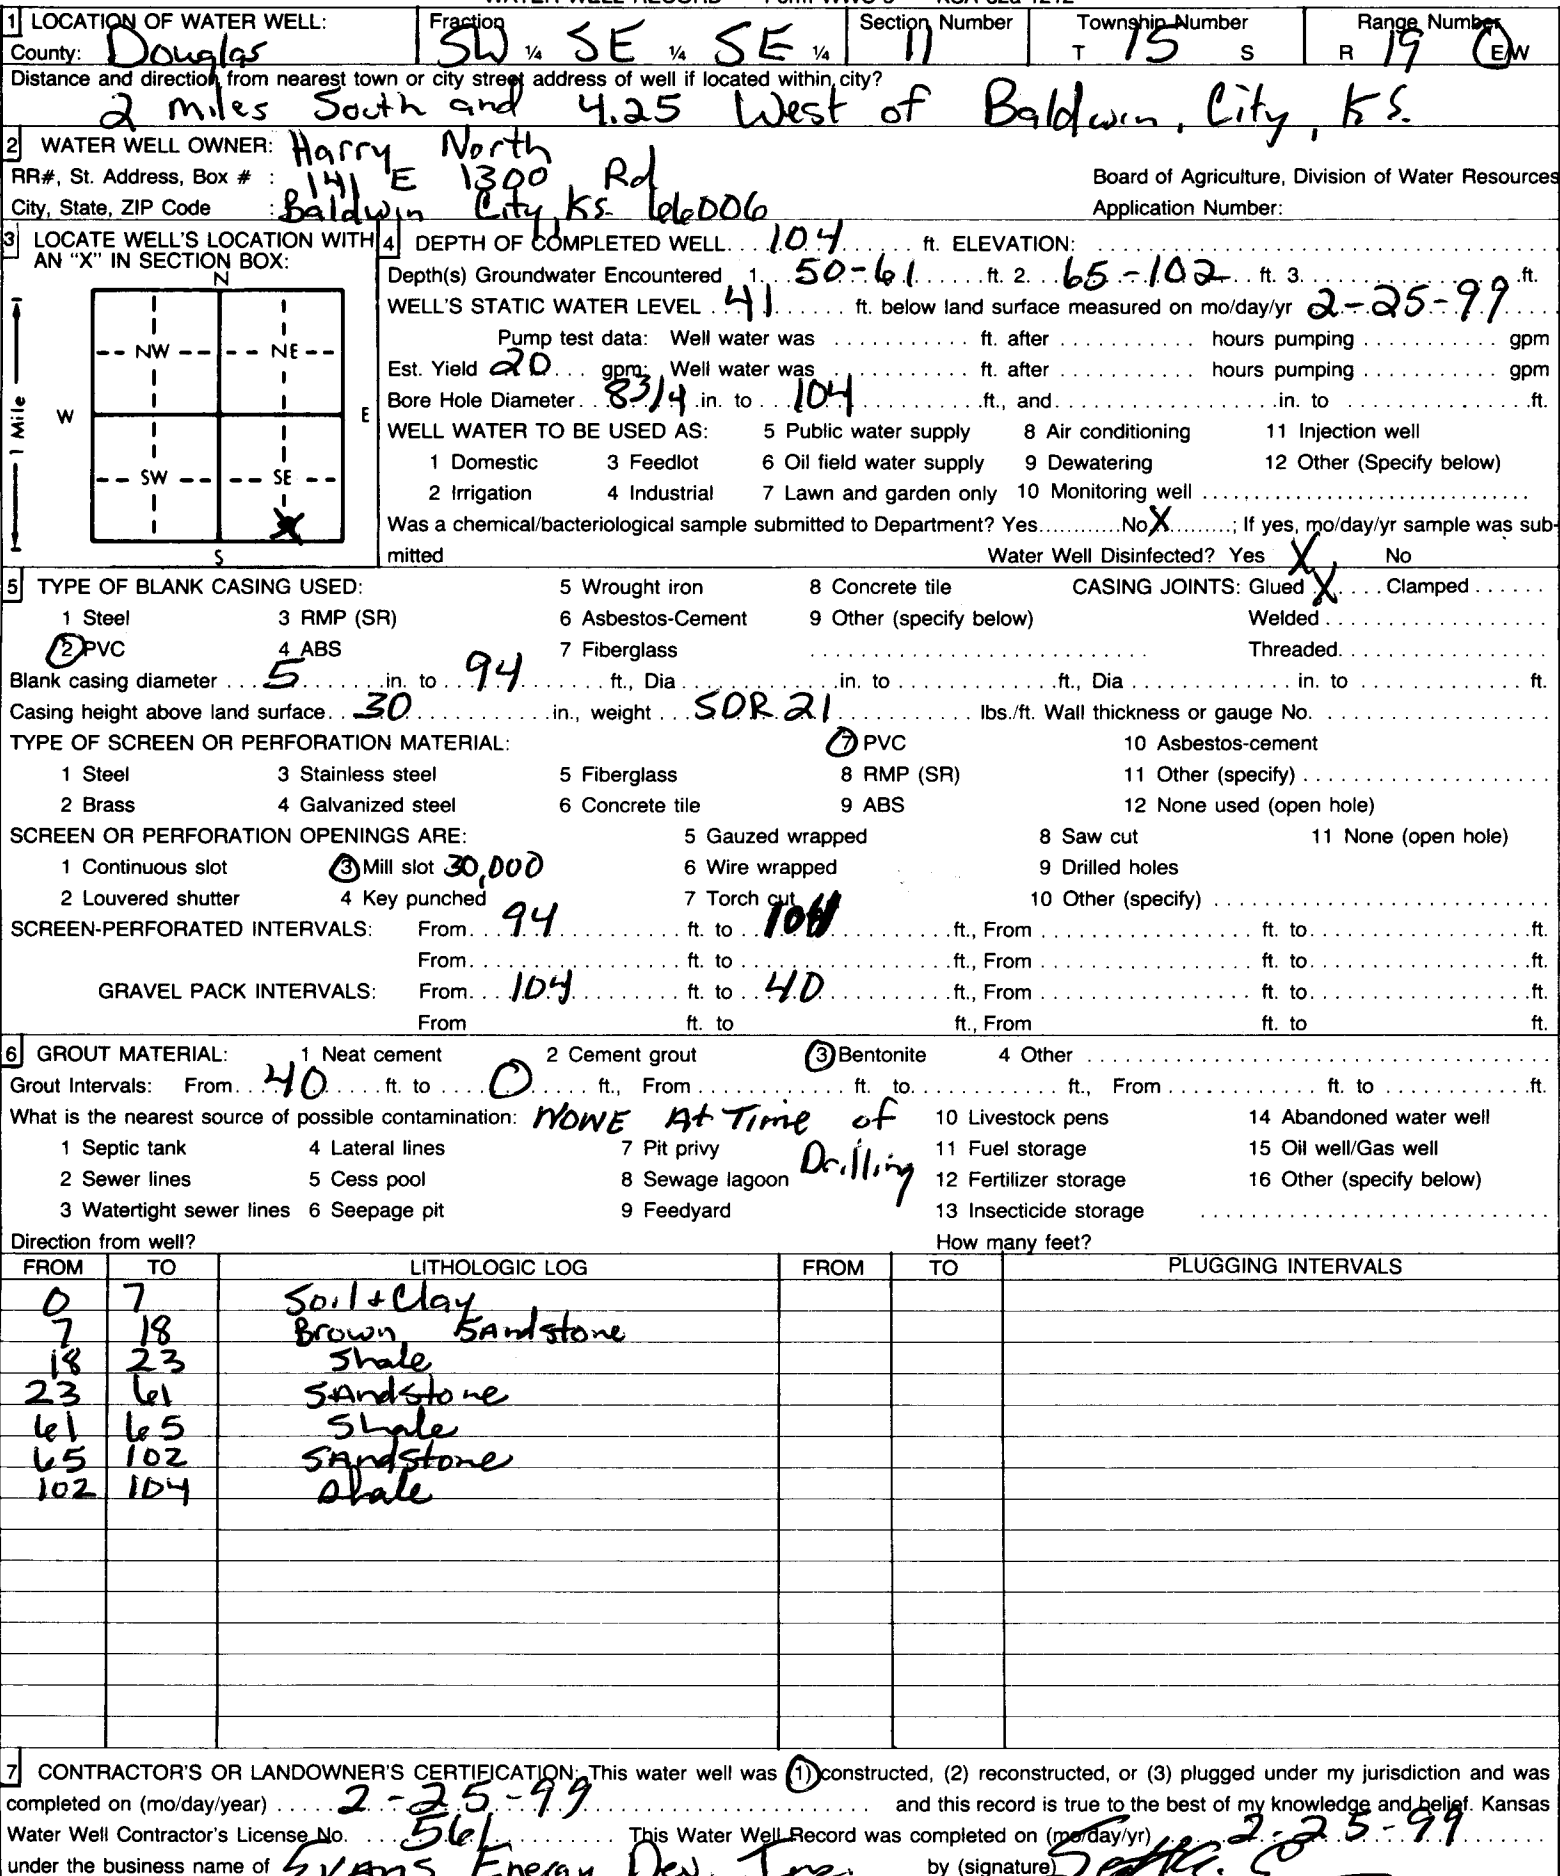 WATER WELL RECORD Form WWC-5 KSA 82a-1212
1 LOCATION OF WATER WELL: Fraction Section Number Township Number Range Number
County: Douglas SW ¼ SE ¼ SE ¼ 11 T 15 S R 19 E/W
Distance and direction from nearest town or city street address of well if located within city?
2 miles South and 4.25 West of Baldwin, City, KS.
2 WATER WELL OWNER: Harry North
RR#, St. Address, Box # : 141 E 1300 Rd Board of Agriculture, Division of Water Resources
City, State, ZIP Code : Baldwin City, KS. 66006 Application Number:
3 LOCATE WELL'S LOCATION WITH AN "X" IN SECTION BOX:
N
NW NE
W E
SW SE
X
S
1 Mile
4 DEPTH OF COMPLETED WELL. 104 ft. ELEVATION:
Depth(s) Groundwater Encountered 1. 50-61 ft. 2. 65-102 ft. 3. ft.
WELL'S STATIC WATER LEVEL 41 ft. below land surface measured on mo/day/yr 2-25-99
Pump test data: Well water was ft. after hours pumping gpm
Est. Yield 20 gpm: Well water was ft. after hours pumping gpm
Bore Hole Diameter 8 3/4 in. to 104 ft., and in. to ft.
WELL WATER TO BE USED AS: 5 Public water supply 8 Air conditioning 11 Injection well
1 Domestic 3 Feedlot 6 Oil field water supply 9 Dewatering 12 Other (Specify below)
2 Irrigation 4 Industrial 7 Lawn and garden only 10 Monitoring well
Was a chemical/bacteriological sample submitted to Department? Yes No X ; If yes, mo/day/yr sample was sub-
mitted Water Well Disinfected? Yes X No
5 TYPE OF BLANK CASING USED: 5 Wrought iron 8 Concrete tile CASING JOINTS: Glued X Clamped
1 Steel 3 RMP (SR) 6 Asbestos-Cement 9 Other (specify below) Welded
2 PVC 4 ABS 7 Fiberglass Threaded
Blank casing diameter 5 in. to 94 ft., Dia in. to ft., Dia in. to ft.
Casing height above land surface 30 in., weight SDR 21 lbs./ft. Wall thickness or gauge No.
TYPE OF SCREEN OR PERFORATION MATERIAL: 7 PVC 10 Asbestos-cement
1 Steel 3 Stainless steel 5 Fiberglass 8 RMP (SR) 11 Other (specify)
2 Brass 4 Galvanized steel 6 Concrete tile 9 ABS 12 None used (open hole)
SCREEN OR PERFORATION OPENINGS ARE: 5 Gauzed wrapped 8 Saw cut 11 None (open hole)
1 Continuous slot 3 Mill slot 30,000 6 Wire wrapped 9 Drilled holes
2 Louvered shutter 4 Key punched 7 Torch cut 10 Other (specify)
SCREEN-PERFORATED INTERVALS: From 94 ft. to 104 ft., From ft. to ft.
From ft. to ft., From ft. to ft.
GRAVEL PACK INTERVALS: From 104 ft. to 40 ft., From ft. to ft.
From ft. to ft., From ft. to ft.
6 GROUT MATERIAL: 1 Neat cement 2 Cement grout 3 Bentonite 4 Other
Grout Intervals: From 40 ft. to 0 ft., From ft. to ft., From ft. to ft.
What is the nearest source of possible contamination: NONE At Time of Drilling 10 Livestock pens 14 Abandoned water well
1 Septic tank 4 Lateral lines 7 Pit privy 11 Fuel storage 15 Oil well/Gas well
2 Sewer lines 5 Cess pool 8 Sewage lagoon 12 Fertilizer storage 16 Other (specify below)
3 Watertight sewer lines 6 Seepage pit 9 Feedyard 13 Insecticide storage
Direction from well? How many feet?
FROM TO LITHOLOGIC LOG FROM TO PLUGGING INTERVALS
0 7 Soil + Clay
7 18 Brown SAndstone
18 23 Shale
23 61 SAndstone
61 65 Shale
65 102 SAndstone
102 104 Shale
7 CONTRACTOR'S OR LANDOWNER'S CERTIFICATION: This water well was (1) constructed, (2) reconstructed, or (3) plugged under my jurisdiction and was
completed on (mo/day/year) 2-25-99 and this record is true to the best of my knowledge and belief. Kansas
Water Well Contractor's License No. 561 This Water Well Record was completed on (mo/day/yr) 2-25-99
under the business name of Evans Energy Dev. Inc. by (signature)